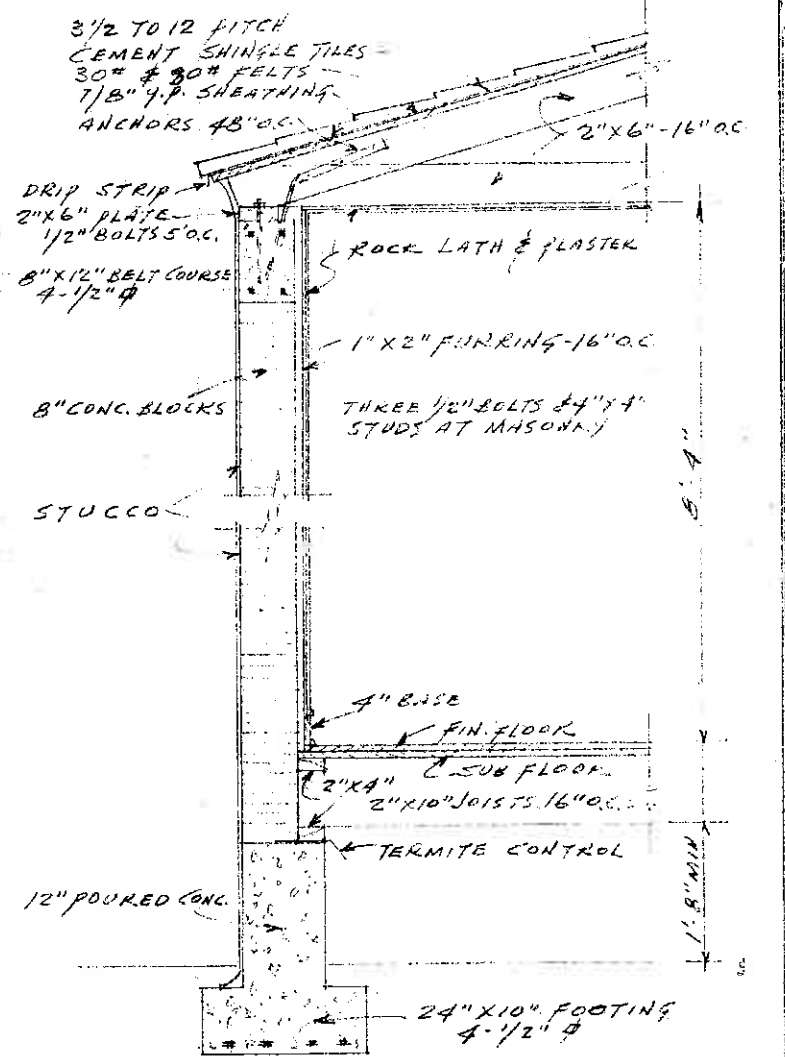 3 1/2 TO 12 PITCH
CEMENT SHINGLE TILES
30# & 90# FELTS
7/8" Y.P. SHEATHING
ANCHORS 48" O.C.
2" X 6" - 16" O.C.
DRIP STRIP
2" X 6" PLATE
1/2" BOLTS 5' O.C.
8" X 12" BELT COURSE
4 - 1/2" φ
ROCK LATH & PLASTER
1" X 2" FURRING - 16" O.C.
8" CONC. BLOCKS
THREE 1/2" BOLTS & 4" X 4"
STUDS AT MASONRY
8'-4"
STUCCO
4" BASE
FIN. FLOOR
SUB FLOOR
2" X 4"
2" X 10" JOISTS 16" O.C.
TERMITE CONTROL
12" POURED CONC.
1'-8" MIN
24" X 10" FOOTING
4 - 1/2" φ